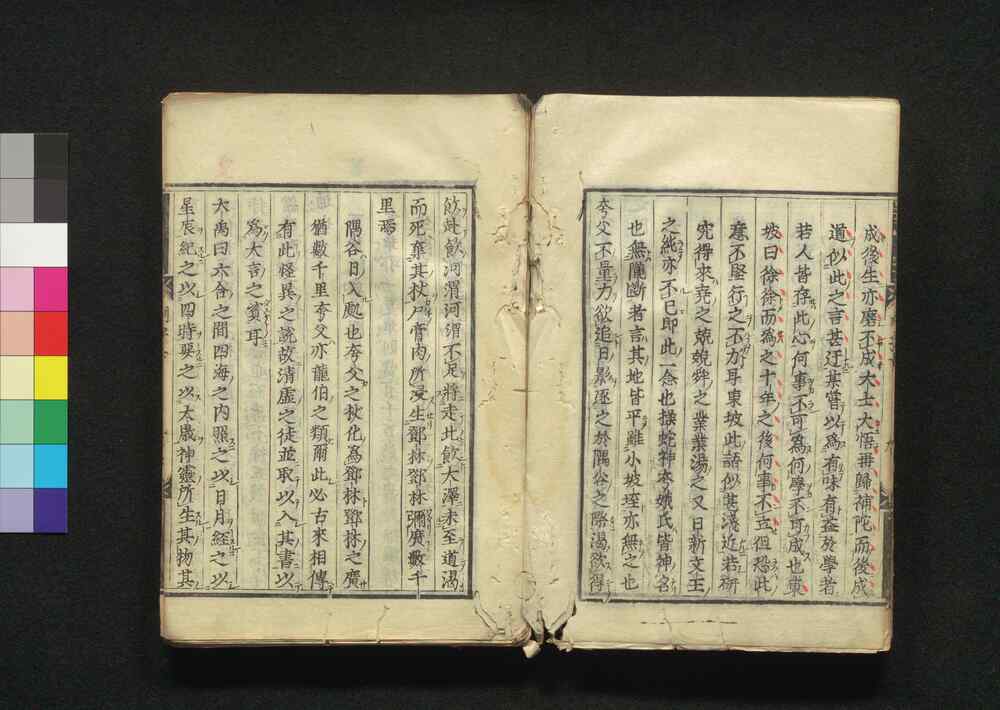 成後生亦磨不成大士大悟再歸補陀而後成
道似此之言甚迂某嘗以為有味有益於學者
若人皆存此心何事不可為何學不可成也東
坡曰徐徐而為之十年之後何事不立但恐此
意不堅行之不力耳東坡此語似甚淺近若斫
究得來堯之兢兢舜之業業湯之又日新文王
之純亦不已即此一念也操蛇神夸娥氏皆神名
也無隴斷者言其地皆平雖小坡垤亦無之也
夸父不量力欲追日影逐之於隅谷之際渴欲得
飲赴飲河渭河渭不足將走北飲大澤未至道渴
而死棄其杖尸膏肉所浸生鄧林鄧林彌廣數千
里焉
隅谷日入處也夸父之杖化為鄧林鄧林之廣
猶數千里夸父亦龍伯之類爾此必古來相傳
有此怪異之說故清虛之徒並取以入其書以
為大言之資耳
大禹曰六合之間四海之内照之以日月經之以
星辰紀之以四時要之以太歲神靈所生其物其